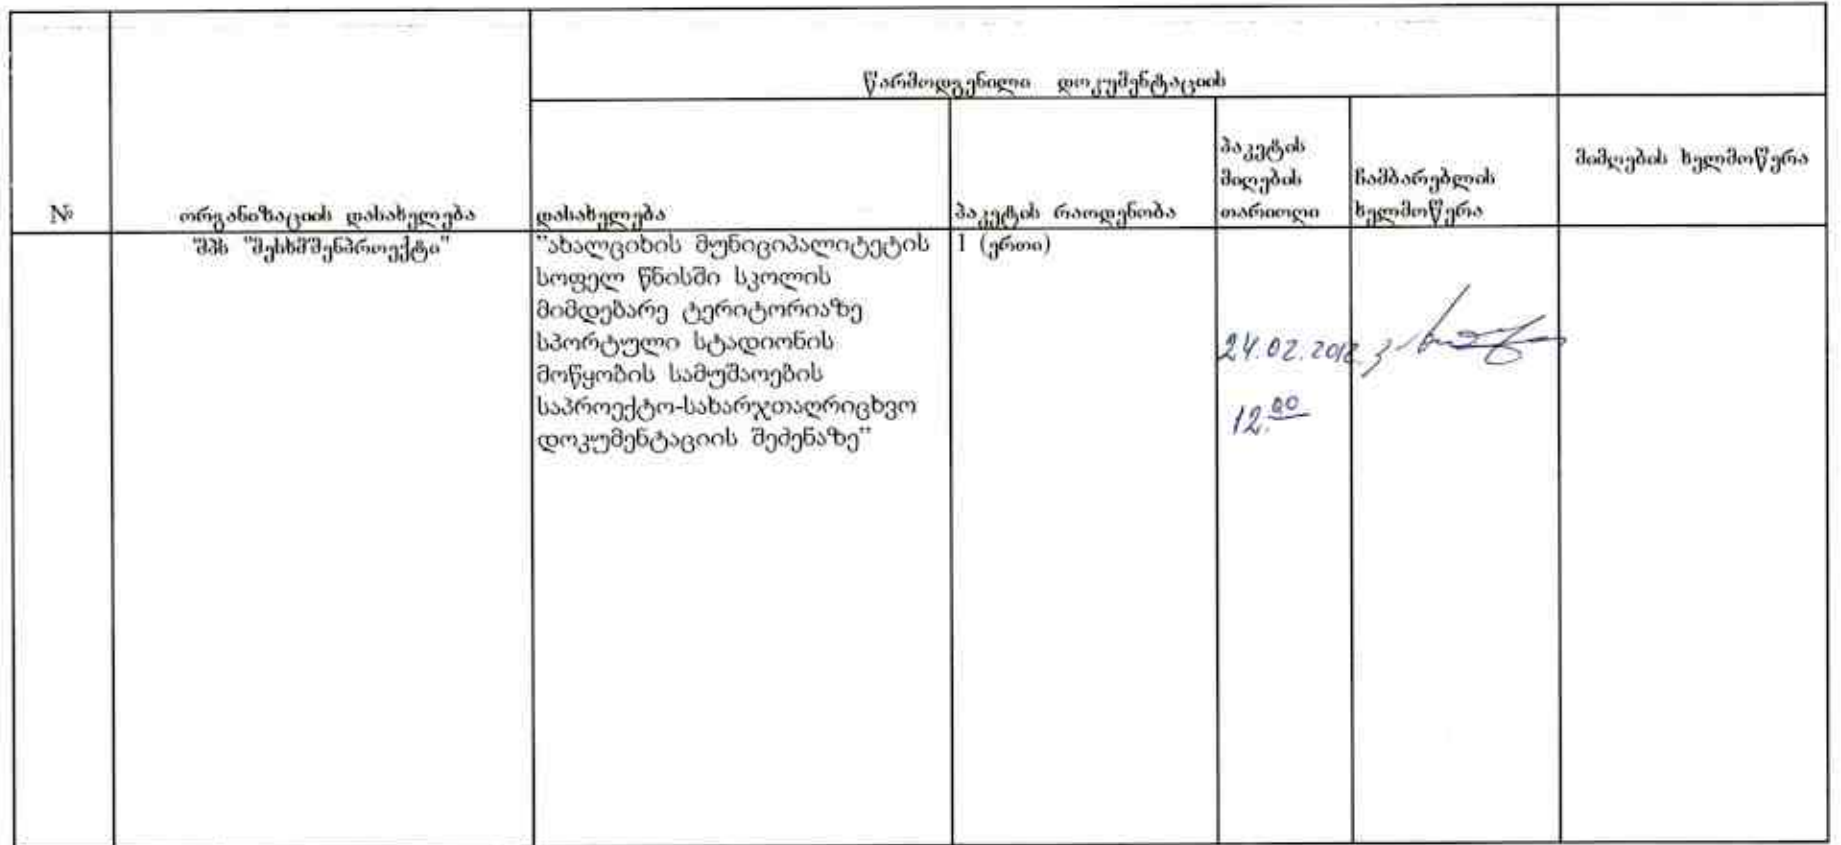 წარმოდგენილი დოკუმენტაციის
№
ორგანიზაციის დასახელება
დასახელება
პაკეტის რაოდენობა
პაკეტის
მიღების
თარიღი
ჩამბარებლის
ხელმოწერა
მიმღების ხელმოწერა
შპს "მესხშენპროექტი"
"ახალციხის მუნიციპალიტეტის
სოფელ წნისში სკოლის
მიმდებარე ტერიტორიაზე
სპორტული სტადიონის
მოწყობის სამუშაოების
საპროექტო-სახარჯთაღრიცხვო
დოკუმენტაციის შეძენაზე"
1 (ერთი)
24.02.2012.
12.00